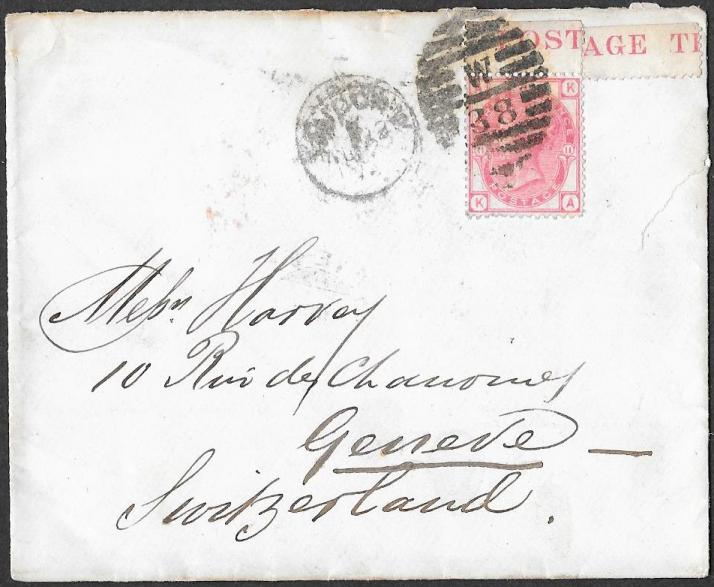 POSTAGE
W
38
K
K
11
POSTAGE
K
A
Messrs Harvey
10 Rue des Chanoines
Geneve —
Switzerland.